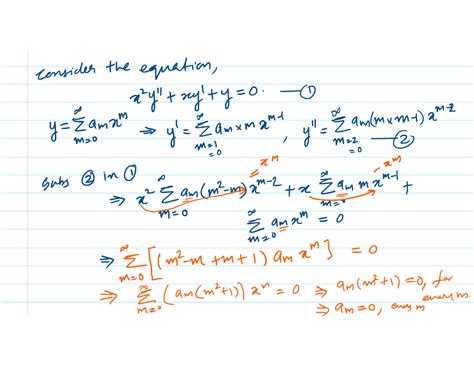 consider the equation,
x²y'' + xy' + y = 0. — ①
y = ∑_{m=0}^{∞} a_m x^m ⇒ y' = ∑_{m=1 =0}^{∞} a_m × m x^{m-1}, y'' = ∑_{m=2 =0}^{∞} a_m (m × m-1) x^{m-2} — ②
subs ② in ① ⇒ x² ∑_{m=0}^{∞} a_m (m²-m) x^{m-2} → x^m + x ∑_{m=0}^{∞} a_m m x^{m-1} → x^m +
∑_{m=0}^{∞} a_m x^m = 0
⇒ ∑_{m=0}^{∞} [(m²-m+m+1) a_m x^m] = 0
⇒ ∑_{m=0}^{∞} (a_m (m²+1)) x^m = 0 ⇒ a_m (m²+1) = 0, for every m.
⇒ a_m = 0, every m